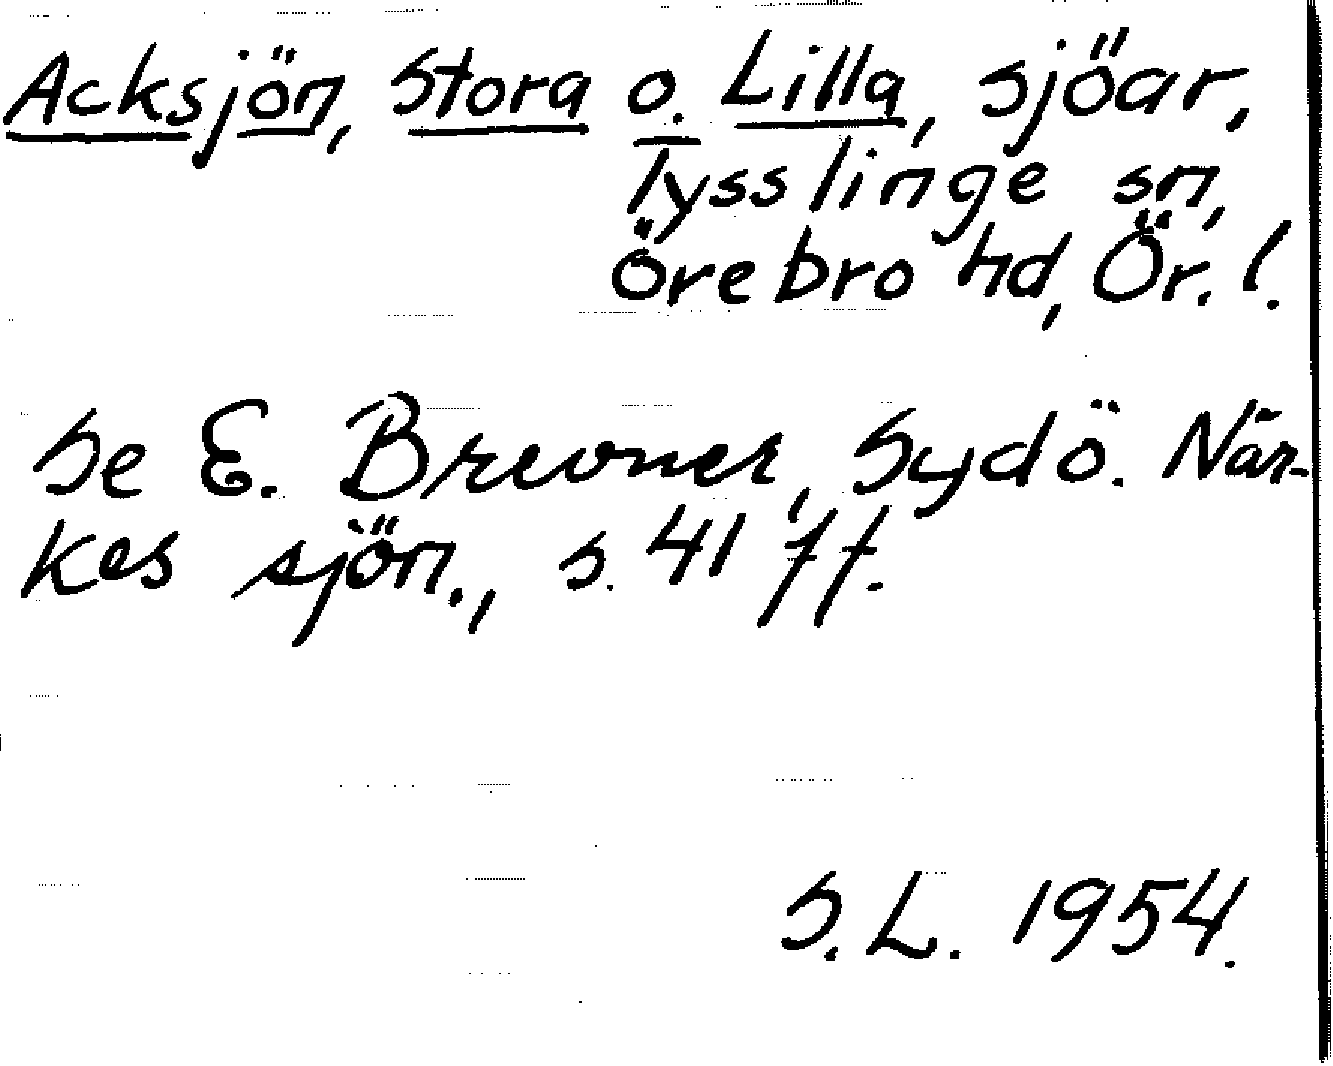 Acksjön, Stora o. Lilla, sjöar,
Tysslinge sn,
Örebro hd, Ör. l.
Se E. Brevner, Sydö. När-
kes sjön., s. 41 ff.
S. L. 1954.